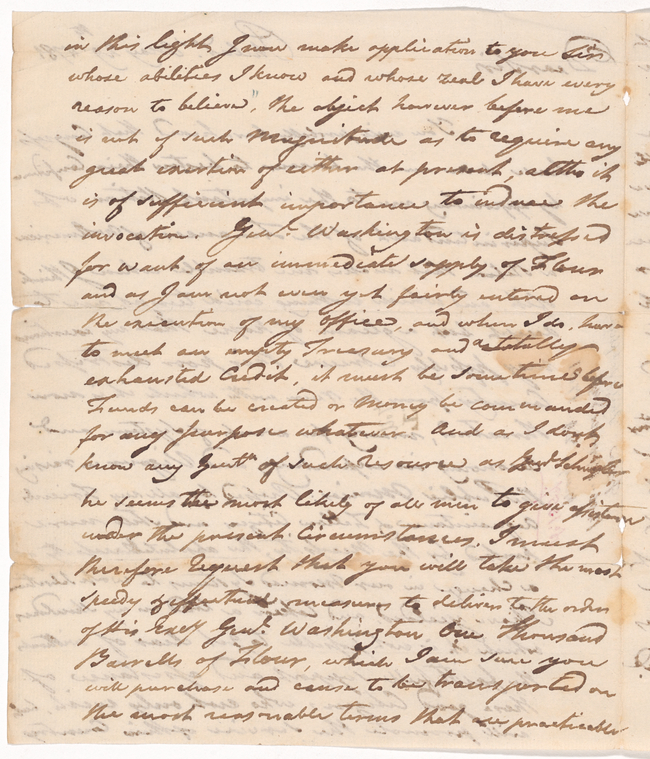 in this light, I now make application to you Sir
whose abilities I know and whose zeal I have every
reason to believe. the object however before me
is not of such Magnitude as to require any
great exertion of either at present, altho it
is of sufficient importance to induce the
invocation. Genl. Washington is distressed
for want of an immediate supply of Flour
and as I am not even yet fairly entered on
the execution of my office, and when I do, have
to meet an empty Treasury and a totally
exhausted Credit, it must be some time before
Funds can be created or Money be commanded
for any purpose whatever. And as I don't
know any Gentn. of such resource as Genl. Schuyler
he seems the most likely of all men to give assistance
under the present Circumstances. I must
therefore Request that you will take the most
speedy & effectual measures to deliver to the order
of His Excy. Genl. Washington One Thousand
Barrells of Flour, which I am sure you
will purchase and cause to be transported on
the most reasonable terms that are practicable